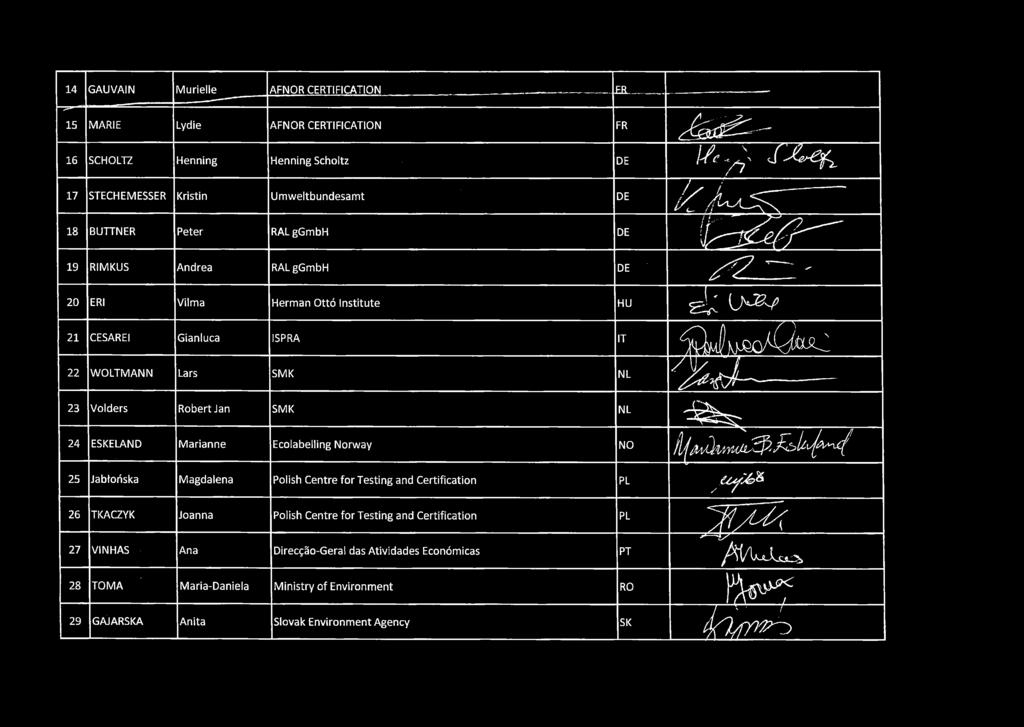 14 GAUVAIN Murielle AFNOR CERTIFICATION FR
15 MARIE Lydie AFNOR CERTIFICATION FR
16 SCHOLTZ Henning Henning Scholtz DE
17 STECHEMESSER Kristin Umweltbundesamt DE
18 BUTTNER Peter RAL gGmbH DE
19 RIMKUS Andrea RAL gGmbH DE
20 ERI Vilma Herman Ottó Institute HU
21 CESAREI Gianluca ISPRA IT
22 WOLTMANN Lars SMK NL
23 Volders Robert Jan SMK NL
24 ESKELAND Marianne Ecolabelling Norway NO Marianne B. Eskeland
25 Jabłońska Magdalena Polish Centre for Testing and Certification PL
26 TKACZYK Joanna Polish Centre for Testing and Certification PL
27 VINHAS Ana Direcção-Geral das Atividades Económicas PT
28 TOMA Maria-Daniela Ministry of Environment RO
29 GAJARSKA Anita Slovak Environment Agency SK